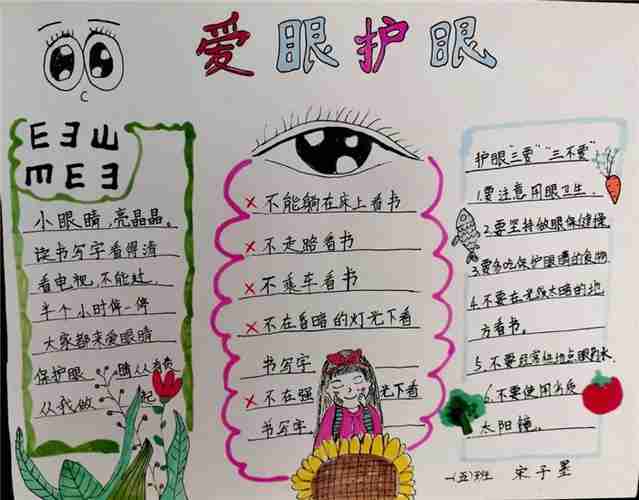 爱眼护眼
E Ǝ Ш
M E Ǝ
小眼睛,亮晶晶。
读书写字看得清
看电视,不能过,
半个小时停一停
大家都来爱眼睛
保护眼 睛从
从我做 起
×不能躺在床上看书
×不走路看书
×不乘车看书
×不在昏暗的灯光下看
书写字
×不在强 光下看
书写字
护眼"三要""三不要"
1.要注意用眼卫生.
2.要坚持做眼保健操
3.要多吃保护眼睛的食物
4.不要在光线太暗的地
方看书。
5.不要经常性地点眼药水
6.不要使用劣质
太阳镜.
一(五)班 宋子墨